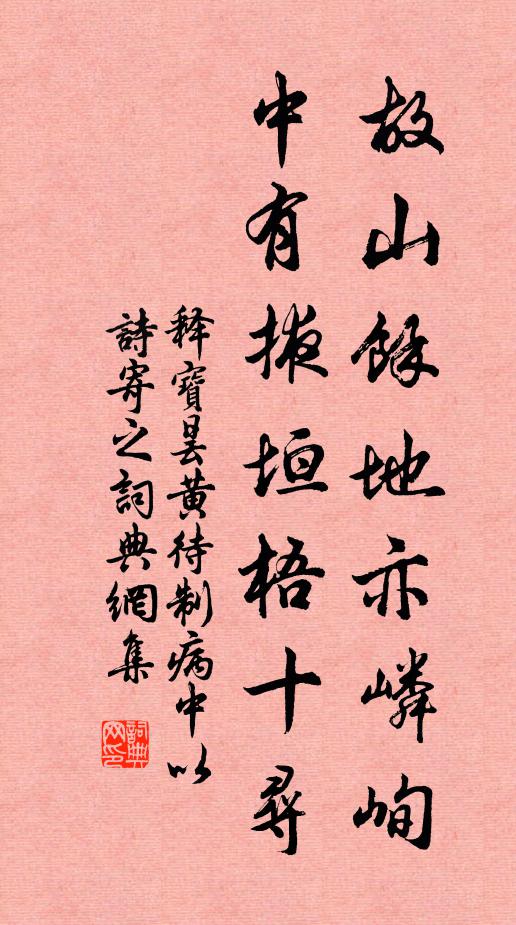 故山餘地亦嶙峋
中有掖垣梧十尋
释寶曇黃待制病中以
詩寄之詞典網集
詞典網印